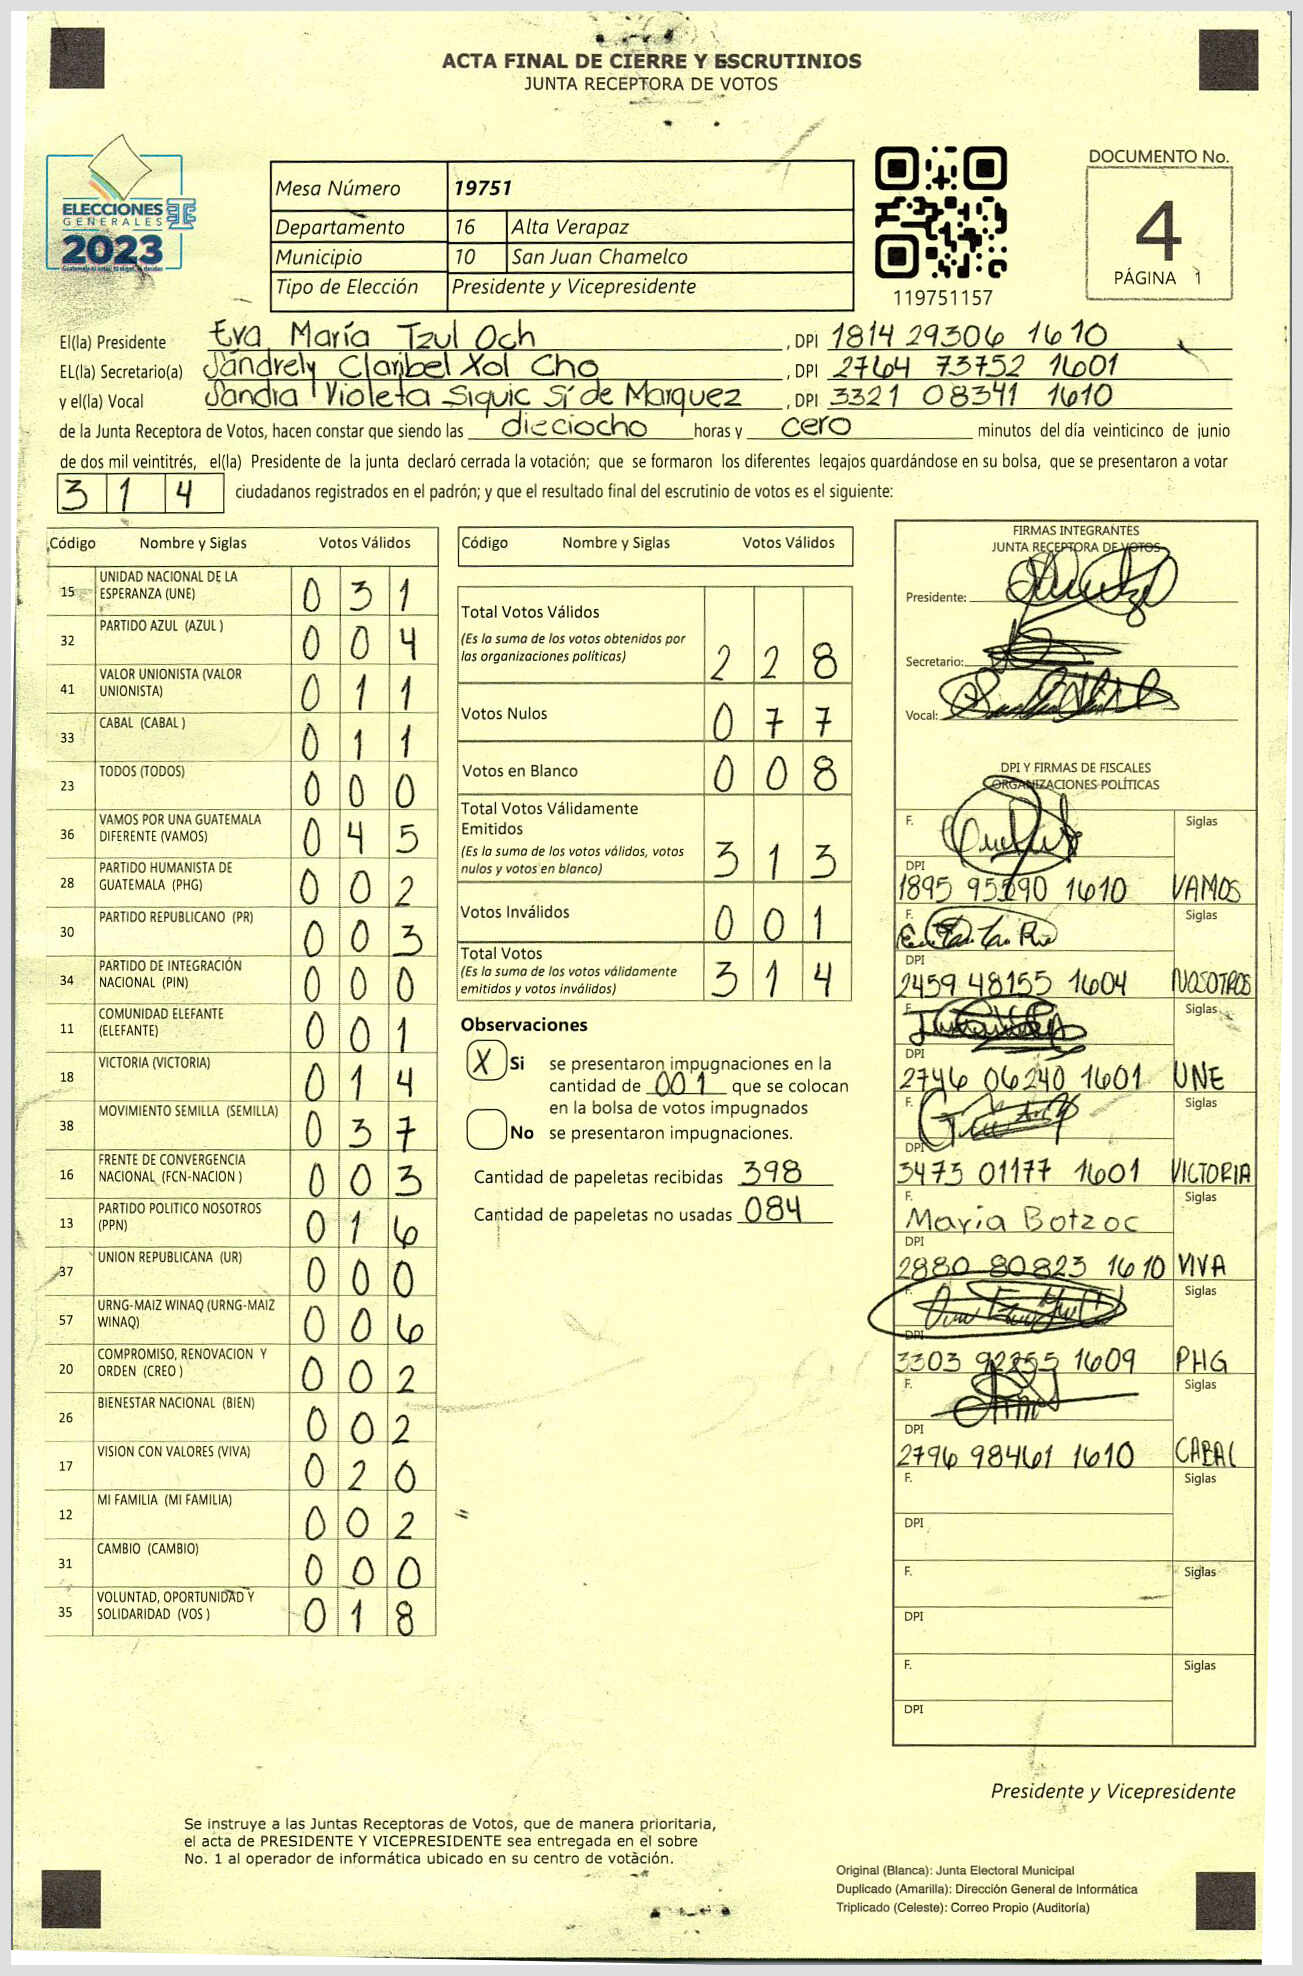 ACTA FINAL DE CIERRE Y ESCRUTINIOS
JUNTA RECEPTORA DE VOTOS
ELECCIONES
GENERALES
2023
Mesa Número 19751
Departamento 16 Alta Verapaz
Municipio 10 San Juan Chamelco
Tipo de Elección Presidente y Vicepresidente
119751157
DOCUMENTO No.
4
PÁGINA 1
El(la) Presidente Eva María Tzul Och , DPI 1814 29306 1610
EL(la) Secretario(a) Sandrely Claribel Xol Cho , DPI 2764 73752 1601
y el(la) Vocal Sandra Violeta Siquic Sí de Marquez , DPI 3321 08341 1610
de la Junta Receptora de Votos, hacen constar que siendo las dieciocho horas y cero minutos del día veinticinco de junio
de dos mil veintitrés, el(la) Presidente de la junta declaró cerrada la votación; que se formaron los diferentes legajos guardándose en su bolsa, que se presentaron a votar
314 ciudadanos registrados en el padrón; y que el resultado final del escrutinio de votos es el siguiente:
Código Nombre y Siglas Votos Válidos
15 UNIDAD NACIONAL DE LA
ESPERANZA (UNE) 031
32 PARTIDO AZUL (AZUL ) 004
41 VALOR UNIONISTA (VALOR
UNIONISTA) 011
33 CABAL (CABAL ) 011
23 TODOS (TODOS) 000
36 VAMOS POR UNA GUATEMALA
DIFERENTE (VAMOS) 045
28 PARTIDO HUMANISTA DE
GUATEMALA (PHG) 002
30 PARTIDO REPUBLICANO (PR) 003
34 PARTIDO DE INTEGRACIÓN
NACIONAL (PIN) 000
11 COMUNIDAD ELEFANTE
(ELEFANTE) 001
18 VICTORIA (VICTORIA) 014
38 MOVIMIENTO SEMILLA (SEMILLA) 037
16 FRENTE DE CONVERGENCIA
NACIONAL (FCN-NACION ) 003
13 PARTIDO POLITICO NOSOTROS
(PPN) 016
37 UNION REPUBLICANA (UR) 000
57 URNG-MAIZ WINAQ (URNG-MAIZ
WINAQ) 006
20 COMPROMISO, RENOVACION Y
ORDEN (CREO ) 002
26 BIENESTAR NACIONAL (BIEN) 002
17 VISION CON VALORES (VIVA) 020
12 MI FAMILIA (MI FAMILIA) 002
31 CAMBIO (CAMBIO) 000
35 VOLUNTAD, OPORTUNIDAD Y
SOLIDARIDAD (VOS ) 018
Código Nombre y Siglas Votos Válidos
Total Votos Válidos
(Es la suma de los votos obtenidos por
las organizaciones políticas) 228
Votos Nulos 077
Votos en Blanco 008
Total Votos Válidamente
Emitidos
(Es la suma de los votos válidos, votos
nulos y votos en blanco) 313
Votos Inválidos 001
Total Votos
(Es la suma de los votos válidamente
emitidos y votos inválidos) 314
Observaciones
X Si se presentaron impugnaciones en la
cantidad de 001 que se colocan
en la bolsa de votos impugnados
No se presentaron impugnaciones.
Cantidad de papeletas recibidas 398
Cantidad de papeletas no usadas 084
FIRMAS INTEGRANTES
JUNTA RECEPTORA DE VOTOS
Presidente:
Secretario:
Vocal:
DPI Y FIRMAS DE FISCALES
ORGANIZACIONES POLÍTICAS
F. Siglas
DPI
1895 95590 1610 VAMOS
F. Siglas
DPI
2459 48155 1604 NOSOTROS
F. Siglas
DPI
2746 06240 1601 UNE
F. Siglas
DPI
3473 01177 1601 VICTORIA
F. Siglas
María Botzoc
DPI
2880 80823 1610 VIVA
F. Siglas
DPI
3303 92255 1609 PHG
F. Siglas
DPI
2796 98461 1610 CABAL
F. Siglas
DPI
F. Siglas
DPI
F. Siglas
DPI
Presidente y Vicepresidente
Se instruye a las Juntas Receptoras de Votos, que de manera prioritaria,
el acta de PRESIDENTE Y VICEPRESIDENTE sea entregada en el sobre
No. 1 al operador de informática ubicado en su centro de votación.
Original (Blanca): Junta Electoral Municipal
Duplicado (Amarilla): Dirección General de Informática
Triplicado (Celeste): Correo Propio (Auditoría)